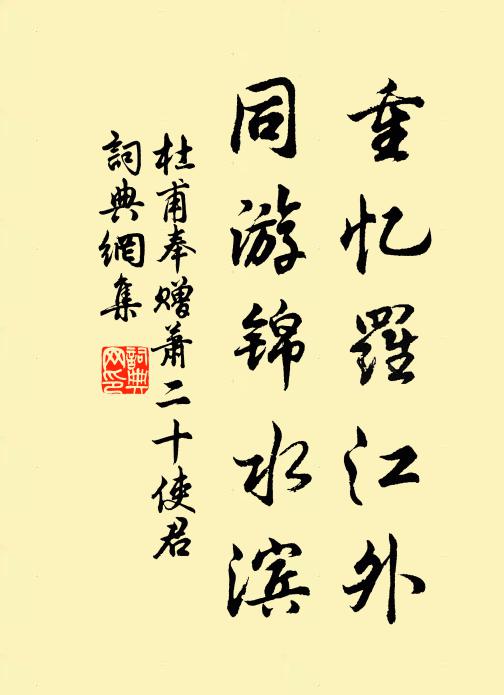 重忆羅江外
同游锦水滨
杜甫奉赠萧二十使君
詞典網集
詞典网印